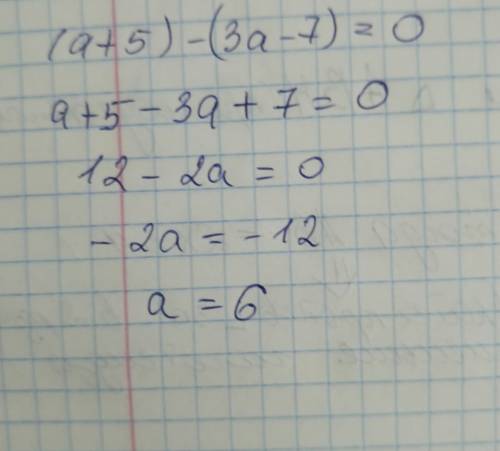 (a+5)-(3a-7)=0
a+5-3a+7=0
12-2a=0
-2a=-12
a=6